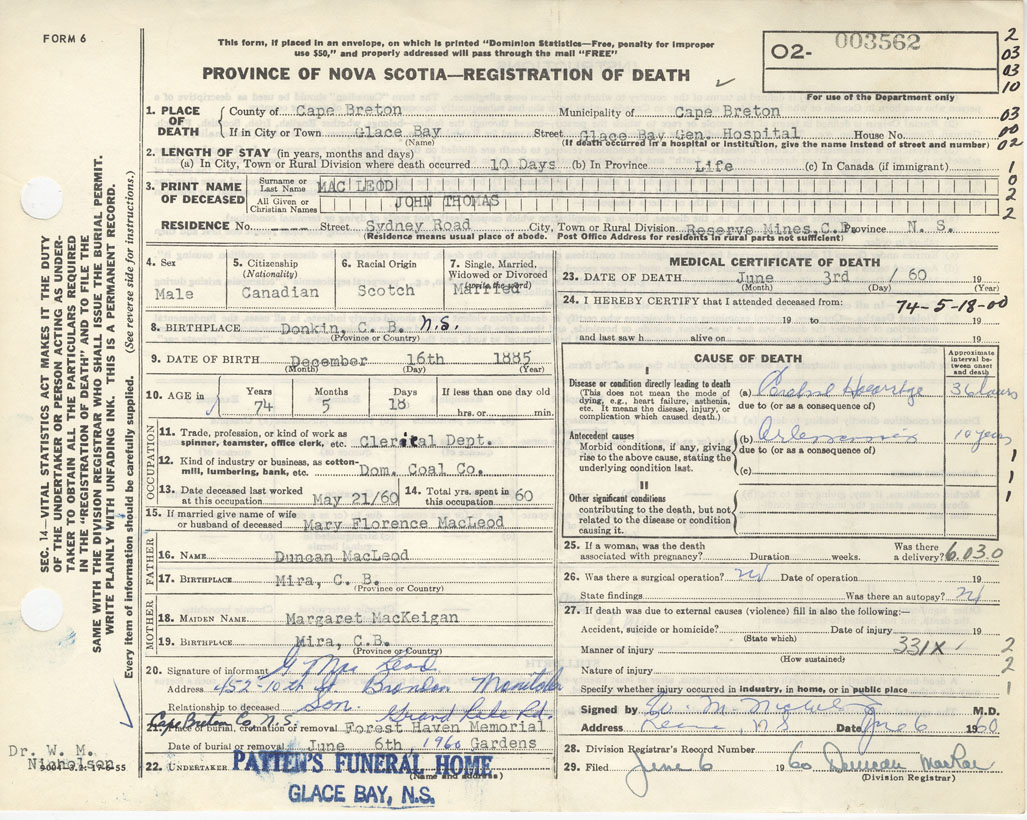 FORM 6
This form, if placed in an envelope, on which is printed "Dominion Statistics—Free, penalty for improper
use $50," and properly addressed will pass through the mail "FREE"
PROVINCE OF NOVA SCOTIA—REGISTRATION OF DEATH
02- 003562
For use of the Department only
2
03
03
10
03
00
02
1
0
2
2
SEC. 14—VITAL STATISTICS ACT MAKES IT THE DUTY
OF THE UNDERTAKER OR PERSON ACTING AS UNDER-
TAKER TO OBTAIN ALL THE PARTICULARS REQUIRED
IN THE "REGISTRATION OF DEATH" AND TO FILE THE
SAME WITH THE DIVISION REGISTRAR WHO SHALL ISSUE THE BURIAL PERMIT.
WRITE PLAINLY WITH UNFADING INK. THIS IS A PERMANENT RECORD.
Every item of information should be carefully supplied. (See reverse side for instructions.)
1. PLACE OF DEATH
County of Cape Breton Municipality of Cape Breton
If in City or Town Glace Bay Street Glace Bay Gen. Hospital House No.
(Name) (If death occurred in a hospital or institution, give the name instead of street and number)
2. LENGTH OF STAY (in years, months and days)
(a) In City, Town or Rural Division where death occurred 10 Days (b) In Province Life (c) In Canada (if immigrant)
3. PRINT NAME OF DECEASED
Surname or Last Name MAC LEOD
All Given or Christian Names JOHN THOMAS
RESIDENCE No. ---- Street Sydney Road City, Town or Rural Division Reserve Mines, C.B. Province N. S.
(Residence means usual place of abode. Post Office Address for residents in rural parts not sufficient)
4. Sex
Male
5. Citizenship
(Nationality)
Canadian
6. Racial Origin
Scotch
7. Single, Married,
Widowed or Divorced
(write the word)
Married
8. BIRTHPLACE Donkin, C. B. N.S.
(Province or Country)
9. DATE OF BIRTH December 16th 1885
(Month) (Day) (Year)
10. AGE in Years 74 Months 5 Days 18 If less than one day old
hrs. or min.
OCCUPATION
11. Trade, profession, or kind of work as
spinner, teamster, office clerk, etc. Clerical Dept.
12. Kind of industry or business, as cotton-
mill, lumbering, bank, etc. Dom. Coal Co.
13. Date deceased last worked
at this occupation May 21/60
14. Total yrs. spent in
this occupation 60
15. If married give name of wife
or husband of deceased Mary Florence MacLeod
FATHER
16. NAME Duncan MacLeod
17. BIRTHPLACE Mira, C. B.
(Province or Country)
MOTHER
18. MAIDEN NAME Margaret MacKeigan
19. BIRTHPLACE Mira, C.B.
(Province or Country)
20. Signature of informant G Mac Leod
Address 452-10th St. Brandon Manitoba
Relationship to deceased Son.
Cape Breton Co. N.S. Grand Lake Rd.
21. Place of burial, cremation or removal Forest Haven Memorial
Date of burial or removal June 6th, 1960 Gardens
22. UNDERTAKER PATTEN'S FUNERAL HOME
(Name and address)
GLACE BAY, N.S.
Dr. W. M.
Nicholson
MEDICAL CERTIFICATE OF DEATH
23. DATE OF DEATH June 3rd / 60 19
(Month) (Day) (Year)
24. I HEREBY CERTIFY that I attended deceased from: 74-5-18-00
19 to 19
and last saw h alive on 19
CAUSE OF DEATH
Approximate
interval be-
tween onset
and death
I
Disease or condition directly leading to death
(This does not mean the mode of
dying, e.g., heart failure, asthenia,
etc. It means the disease, injury, or
complication which caused death.)
(a) Cerebral 36 hours
due to (or as a consequence of)
Antecedent causes
Morbid conditions, if any, giving
rise to the above cause, stating the
underlying condition last.
(b) 10 years
due to (or as a consequence of)
(c)
1
1
1
II
Other significant conditions
contributing to the death, but not
related to the disease or condition
causing it.
25. If a woman, was the death
associated with pregnancy? Duration weeks. Was there
a delivery? 6.030
26. Was there a surgical operation? Date of operation 19
State findings Was there an autopsy?
27. If death was due to external causes (violence) fill in also the following:—
Accident, suicide or homicide? Date of injury 19
(State which)
Manner of injury 331X 1 2
(How sustained)
Nature of injury 2
Specify whether injury occurred in industry, in home, or in public place 1
Signed by M.D.
Address N S Date June 6 1960
28. Division Registrar's Record Number
29. Filed June 6 1960 Duncan MacRae
(Division Registrar)